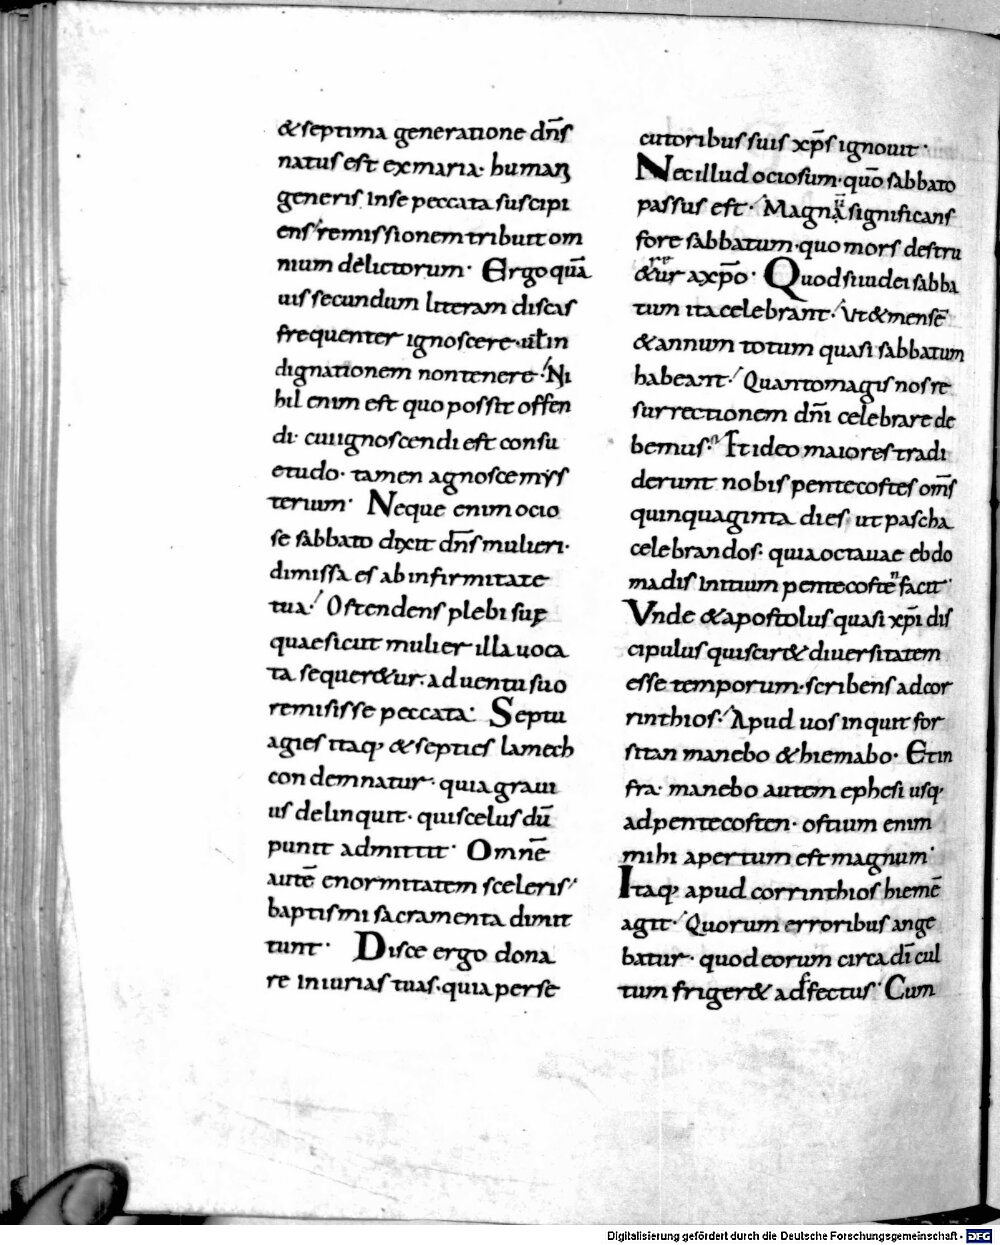 &septima generatione dn̄s
natus est ex maria· humaꝝ
generis inse peccata suscipi
ens remissionem tribuit om
nium delictorum· Ergo quā
uis secundum literam discas
frequenter ignoscere· uł in
dignationem non tenere· Ni
hil enim est quo possit offen
di· cui ignoscendi est consu
etudo· tamen agnosce mys
terium· Neque enim ocio
se sabbato dixit dn̄s mulieri·
dimissa es ab infirmitate
tua· Ostendens plebi suę
quae sicut mulier illa uoca
ta sequer&ur· aduentu suo
remisisse peccata· Septu
agies itaq· & septies lamech
condemnatur· quia graui
us delinquit· qui scelus dū
punit admittit· Omnē
autē enormitatem sceleris
baptismi sacramenta dimit
tunt· Disce ergo dona
re iniurias tuas· quia perse
cutoribus suis xp̄s ignouit·
Nec illud ociosum· quō sabbato
passus est· Magnā significans
fore sabbatum· quo mors destru
&ur axp̄o· Quod si iudei sabba
tum ita celebrant· Ut & mensē
& annum totum quasi sabbatum
habeant· Quanto magis nos re
surrectionem dn̄i celebrare de
bemus· Et ideo maiores tradi
derunt nobis pentecostes om̄s
quinquaginta dies ut pascha
celebrandos· quia octauae ebdo
madis initium pentecosten facit·
Vnde & apostolus quasi xp̄i dis
cipulus qui scir& diuersitatem
esse temporum· scribens ad cor
rinthios· Apud uos inquit for
sitan manebo & hiemabo· Et in
fra· manebo autem ephesi usq·
ad pentecosten· ostium enim
mihi apertum est magnum·
Itaq· apud corrinthios hiemē
agit· Quorum erroribus ange
batur· quod eorum circa dī cul
tum friger& adfectus· Cum
Digitalisierung gefördert durch die Deutsche Forschungsgemeinschaft - DFG